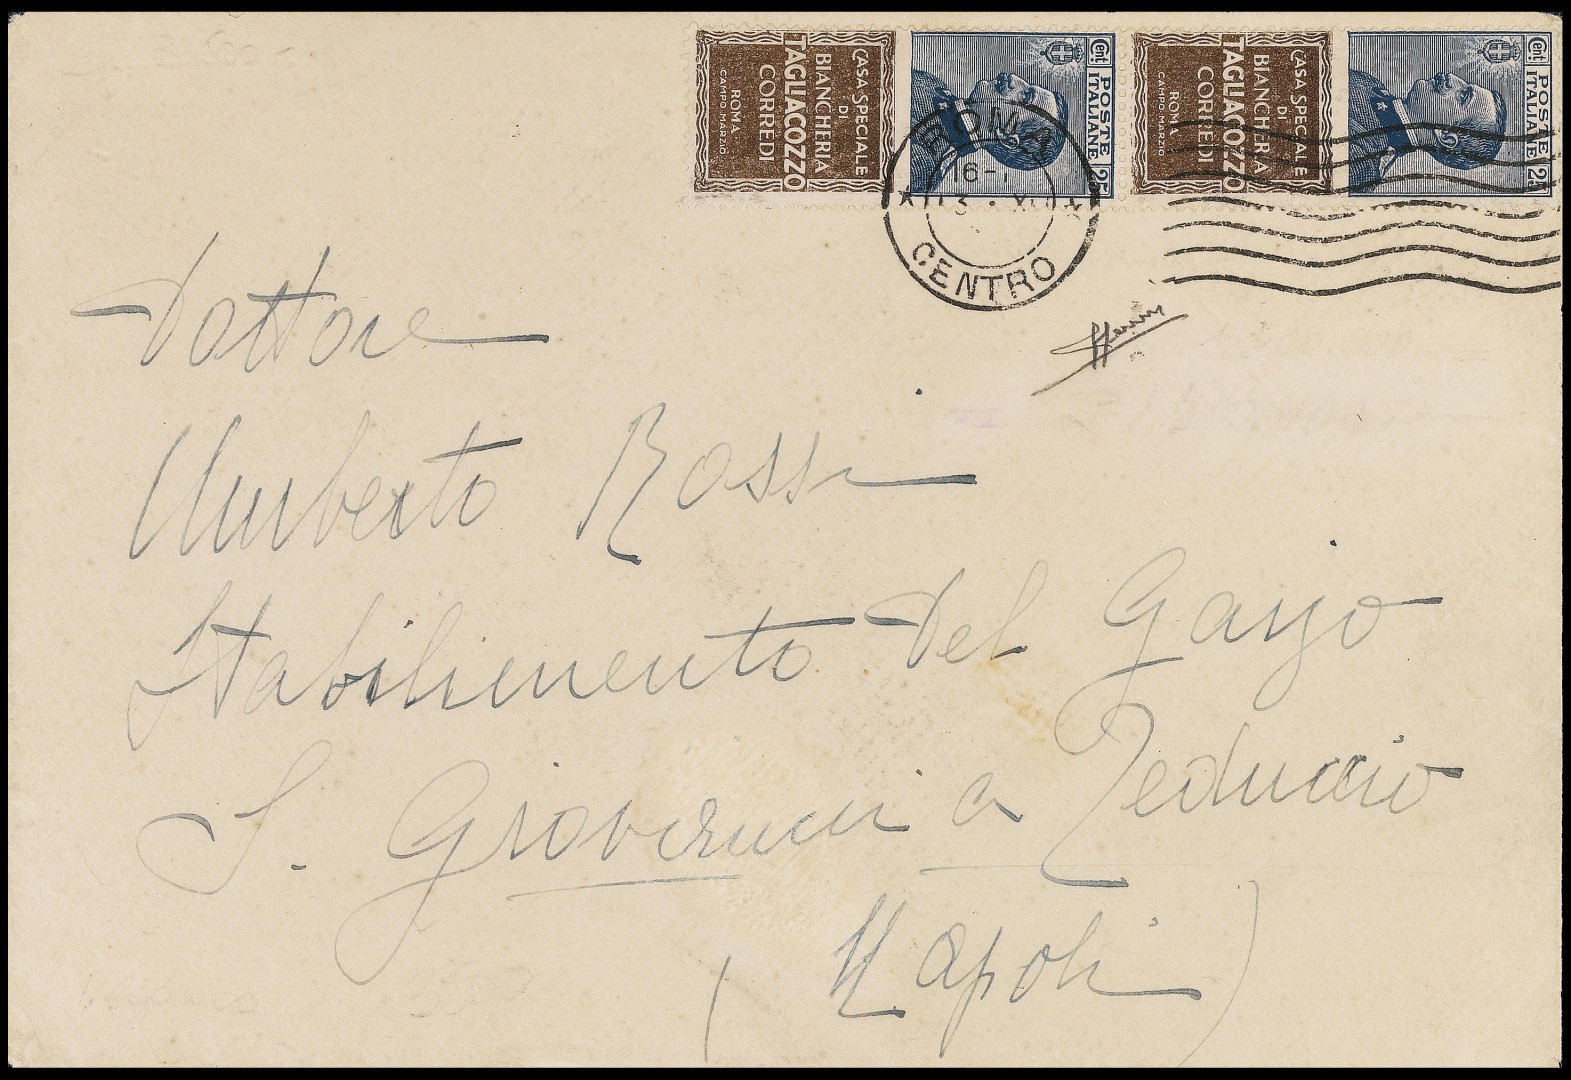 CASA SPECIALE
DI
BIANCHERIA
TAGLIACOZZO
CORREDI
ROMA
CAMPO MARZIO
Cent. 25
POSTE
ITALIANE
CASA SPECIALE
DI
BIANCHERIA
TAGLIACOZZO
CORREDI
ROMA
CAMPO MARZIO
Cent. 25
POSTE
ITALIANE
ROMA
16-
CENTRO
Dottore
Umberto Rossi
Stabilimento del Gazzo
S. Giovanni a Teduccio
(Napoli)